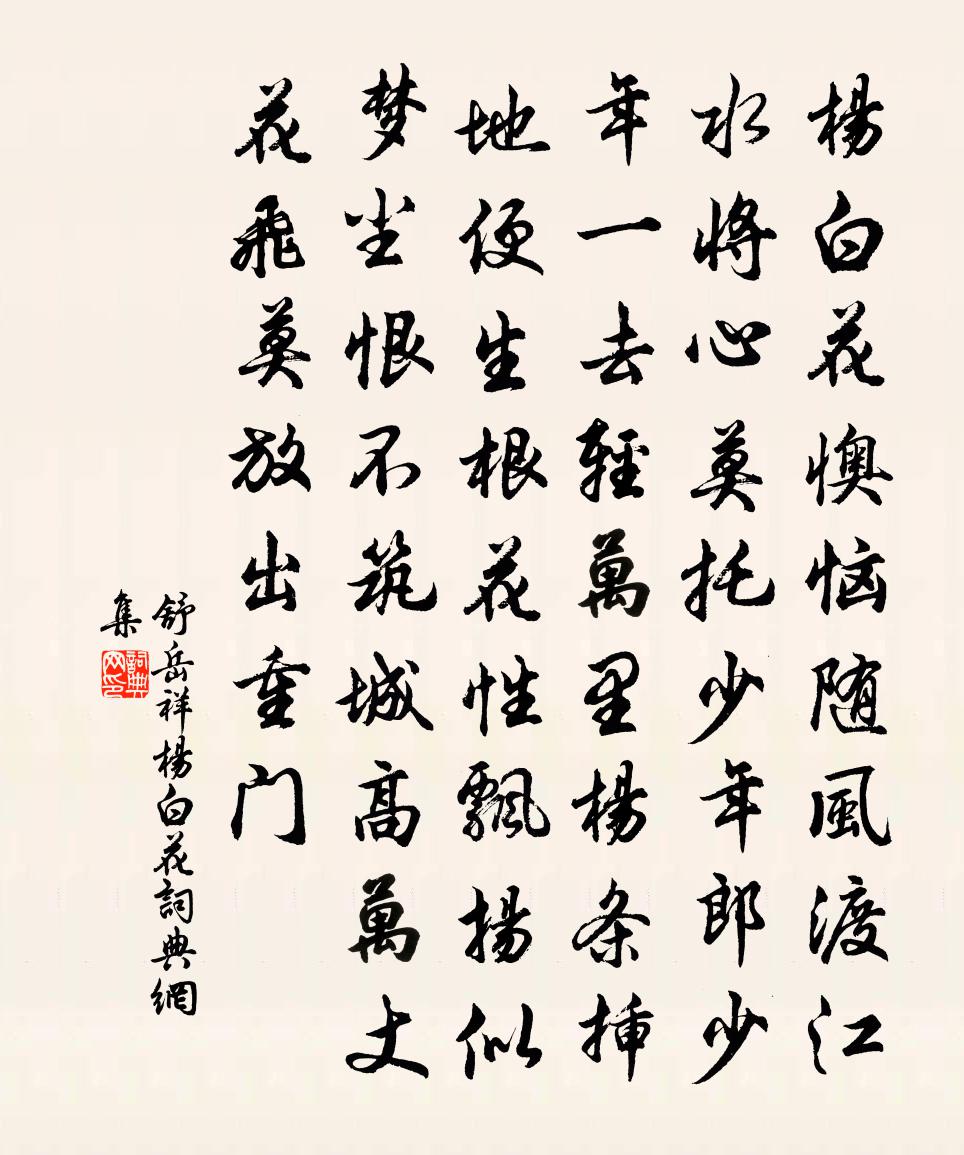 楊白花懊恼随風渡江
水將心莫托少年郎少
年一去輕萬里楊条挿
地便生根花性飄揚似
梦坐恨不筑城高萬丈
花飛莫放出重门
舒岳祥楊白花詞典網
集
詞典
网印